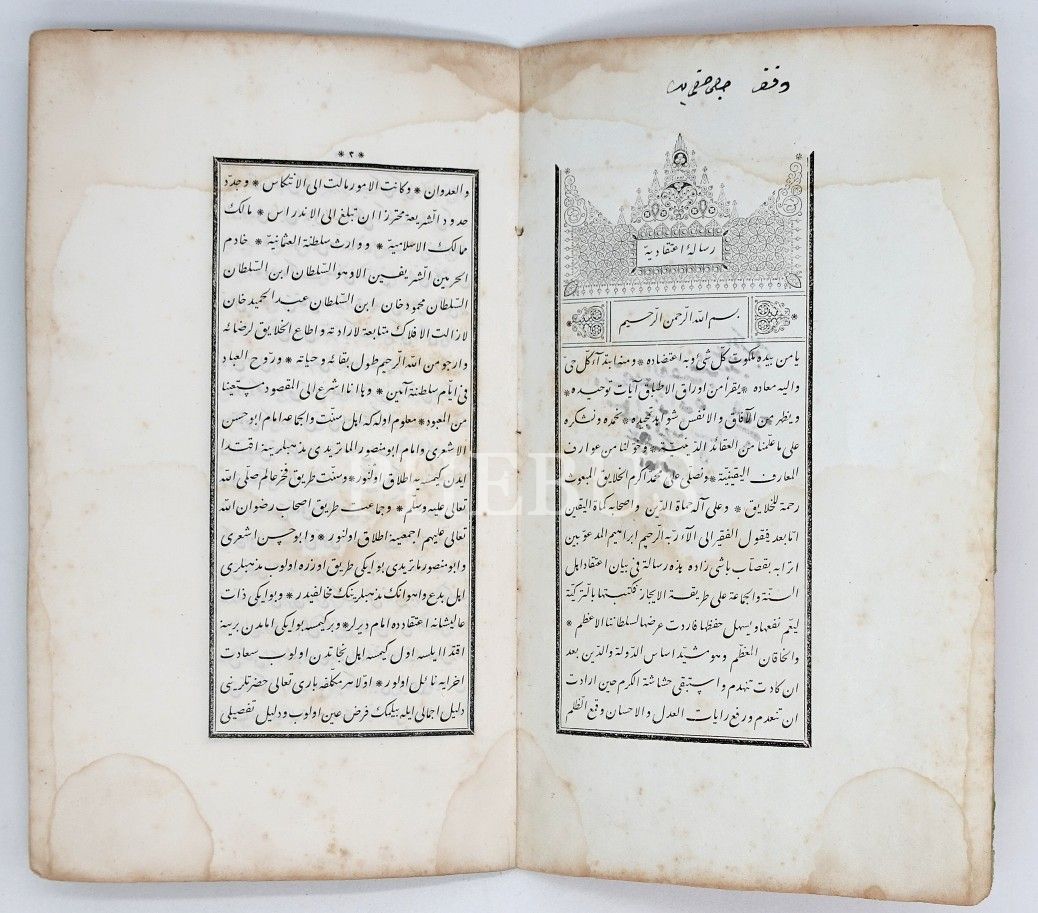 وقف
رسالۀ اعتقادية
بسم الله الرّحمن الرّحيم
يا من بيده ملكوت كلّ شئ وبه اعتضاده * ومنه ابتدآء كلّ حىّ
واليه معاده * يقرأ من اوراق الاطباق آيات توحيده *
ويظهر من الآفاق والانفس شواهد تمجيده * نحمده ونشكره
على ما علّمنا من العقائد الدّينيّة * وخوّلنا من عوارف
المعارف اليقينيّة * ونصلى على محمّد اكرم الخلايق المبعوث
رحمة للخلايق * وعلى آله حماة الدّين واصحابه كماة اليقين
امّا بعد فيقول الفقير الى آلاء ربّه الرّحيم ابراهيم المدعوّ بين
اترابه بقصّاب باشى زاده هذه رسالة فى بيان اعتقاد اهل
السنّة والجماعة على طريقة الايجاز فكتبتها بالتّركيّة
ليعمّ نفعها ويسهل حفظها فاردت عرضها لسلطاننا الاعظم *
والخاقان المعظّم وهو مشيّد اساس الدّولة والدّين بعد
ان كادت تنهدم واستبقى حشاشة الكرم حين ارادت
ان تنعدم ورفع رايات العدل والاحسان وقمع الظّلم
* ٢ *
والعدوان * وكانت الامور مالت الى الانتكاس * وجدّد
حدود الشّريعة محترزا ان تبلغ الى الاندراس * مالك
ممالك الاسلامية * ووارث سلطنة العثمانية * خادم
الحرمين الشّريفين الا وهو السّلطان ابن السّلطان
السّلطان محمود خان ابن السّلطان عبد الحميد خان
لا زالت الافلاك متابعة لارادته واطاع الخلايق لرضائه
وارجو من الله الرّحيم طول بقائه وحياته * وروّح العباد
فى ايّام سلطنته آمين * وها انا اشرع الى المقصود مستعينا
من المعبود * معلوم اوله كه اهل سنّت والجماعه امام ابو حسن
الاشعرى وامام ابو منصور الماتريدى مذهبلرينه اقتدا
ايدن كيمسه يه اطلاق اولنور * وسنّت طريق فخر عالم صلّى الله
تعالى عليه وسلّم * وجماعت طريق اصحاب رضوان الله
تعالى عليهم اجمعينه اطلاق اولنور * وابو حسن اشعرى
وابو منصور ماتريدى بو ايكى طريق اوزره اولوب مذهبلرى
اهل بدع واهوانك مذهبلرينك مخالفيدر * وبو ايكى ذات
عاليشانه اعتقادده امام ديرلر * وبر كيمسه بو ايكى امامدن برينه
اقتدا ايلسه اول كيمسه اهل نجاتدن اولوب سعادت
اخرايه نائل اولور * اوّلا هر مكلّفه بارى تعالى حضرتلرينى
دليل اجمالى ايله بيلمك فرض عين اولوب ودليل تفصيلى
PHEBUS